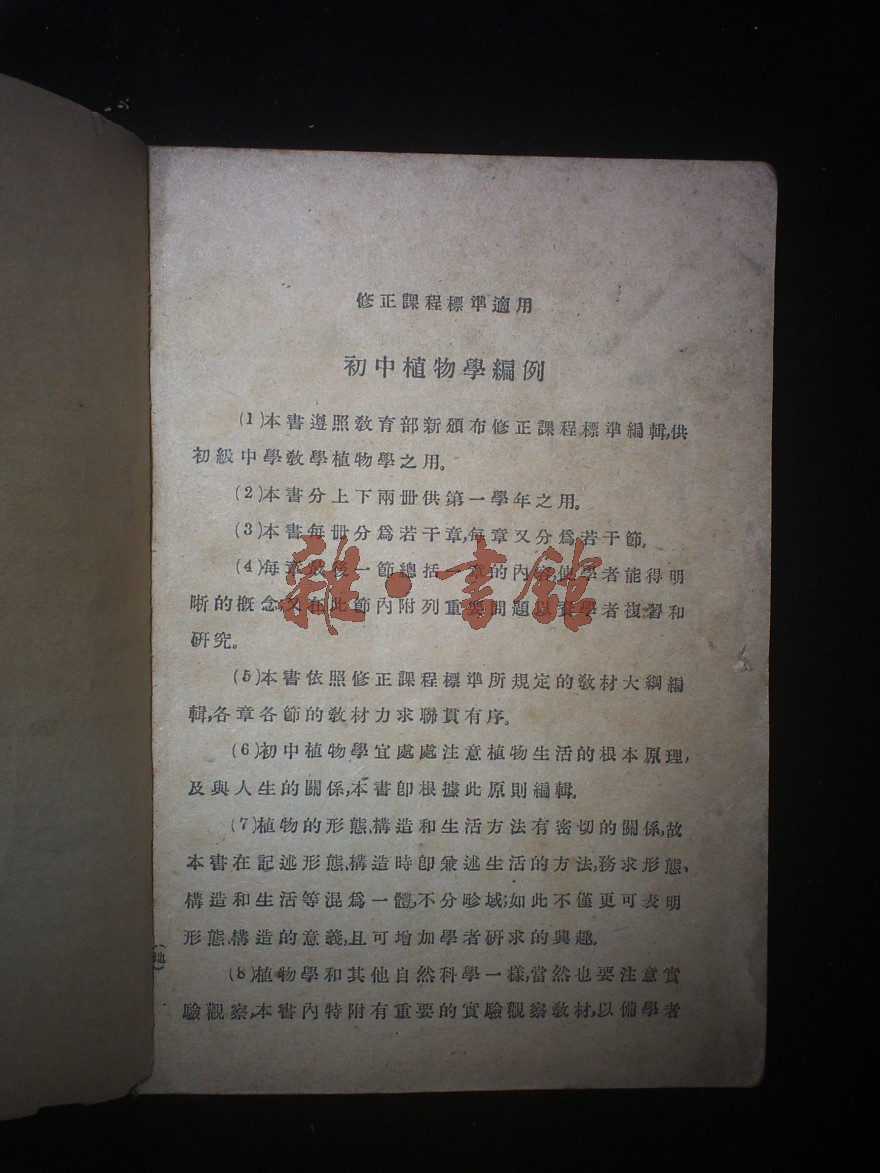 修正課程標準適用
初中植物學編例
(1)本書遵照教育部新頒布修正課程標準編輯,供
初級中學教學植物學之用。
(2)本書分上下兩冊供第一學年之用。
(3)本書每冊分爲若干章,每章又分爲若干節。
(4)每章最後一節總括一章的內容,使學者能得明
晰的概念,又在此節內附列重要問題以資學者複習和
研究。
(5)本書依照修正課程標準所規定的教材大綱編
輯,各章各節的教材力求聯貫有序。
(6)初中植物學宜處處注意植物生活的根本原理,
及與人生的關係,本書卽根據此原則編輯。
(7)植物的形態、構造和生活方法有密切的關係,故
本書在記述形態、構造時卽兼述生活的方法,務求形態、
構造和生活等混爲一體,不分畛域;如此不僅更可表明
形態、構造的意義,且可增加學者研求的興趣。
(8)植物學和其他自然科學一樣,當然也要注意實
驗觀察,本書內特附有重要的實驗觀察教材,以備學者
雜·書館